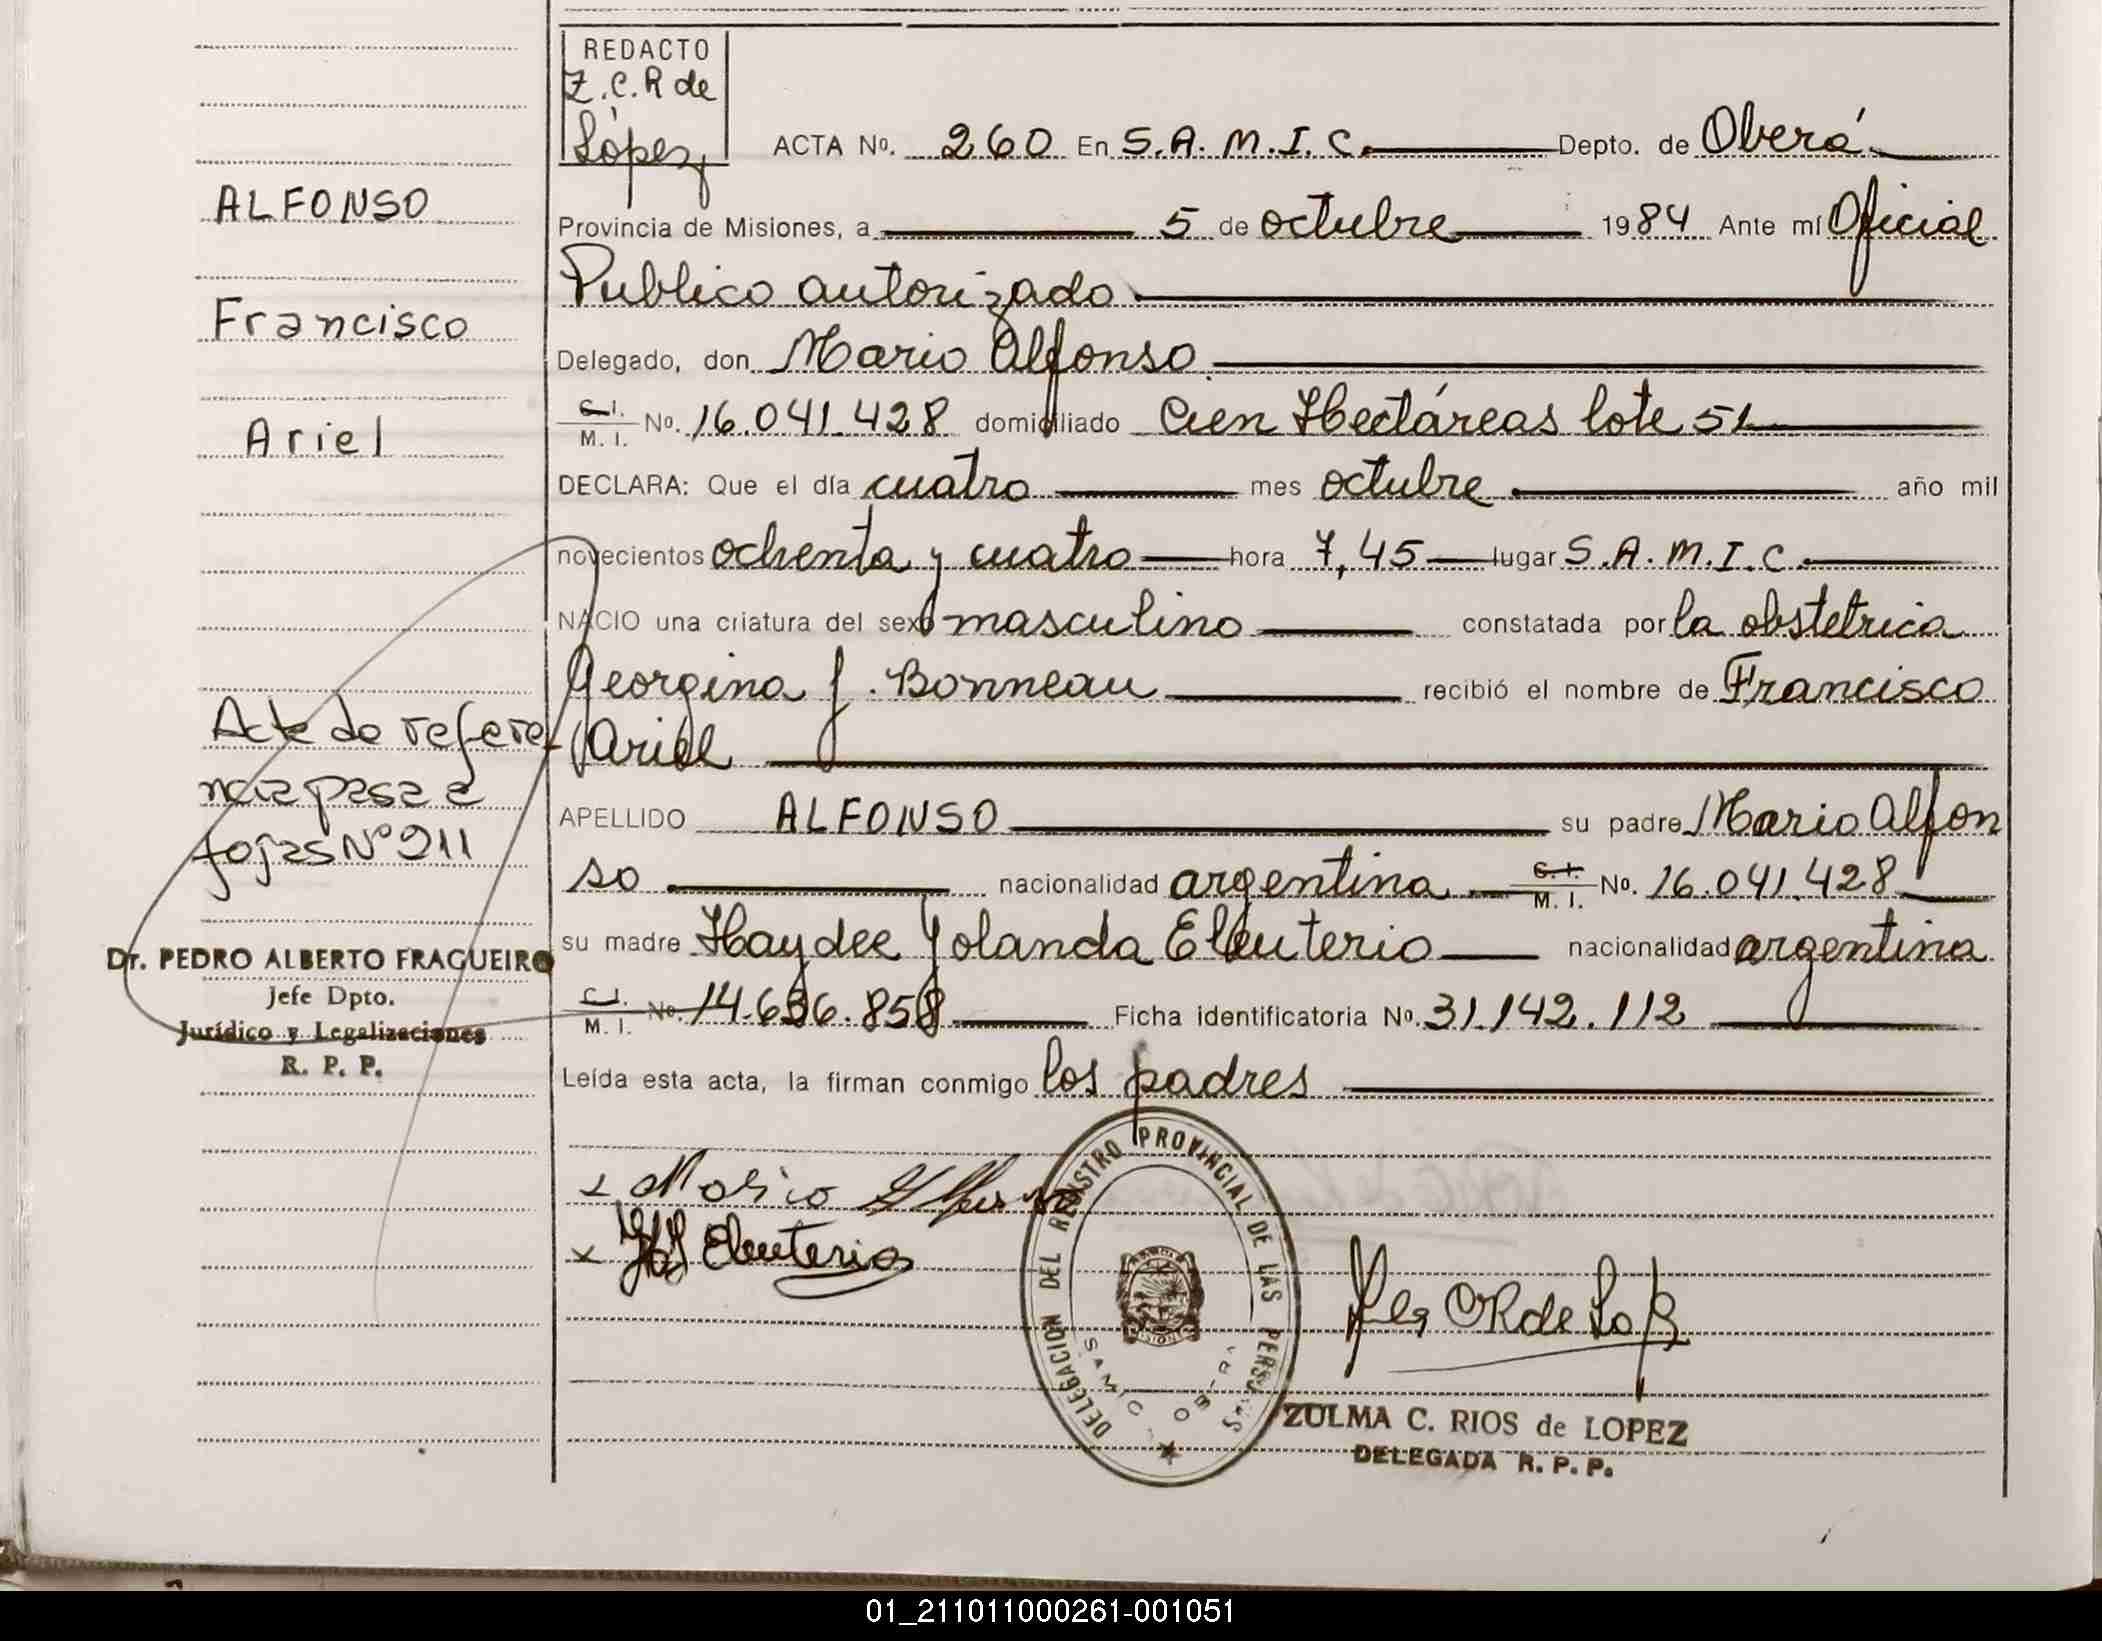 REDACTO
Z.C.R de
López
ACTA No. 260 En S.A.M.I.C. Depto. de Oberá
Provincia de Misiones, a 5 de octubre 1984 Ante mí Oficial
Publico autorizado
Delegado, don Mario Alfonso
C.I. M.I. No. 16.041.428 domiciliado Cien Hectáreas lote 51
DECLARA: Que el día cuatro mes octubre año mil
novecientos ochenta y cuatro hora 7,45 lugar S.A.M.I.C.
NACIO una criatura del sexo masculino constatada por la obstetrica
Georgina J. Bonneau recibió el nombre de Francisco
Ariel
APELLIDO ALFONSO su padre Mario Alfon
so nacionalidad argentina C.I. M.I. No. 16.041.428
su madre Haydee Yolanda Eleuterio nacionalidad argentina
C.I. M.I. No. 14.636.858 Ficha identificatoria No. 31.142.112
Leída esta acta, la firman conmigo los padres
Mario Alfonso
HY Eleuterio
DELEGACION DEL REGISTRO PROVINCIAL DE LAS PERSONAS
SAMIC OBERA
ZULMA C. RIOS de LOPEZ
DELEGADA R.P.P.
ALFONSO
Francisco
Ariel
Acta de refere
ncia pasa a
fojas Nº 211
Dr. PEDRO ALBERTO FRAGUEIRO
Jefe Dpto.
Jurídico y Legalizaciones
R. P. P.
01_211011000261-001051